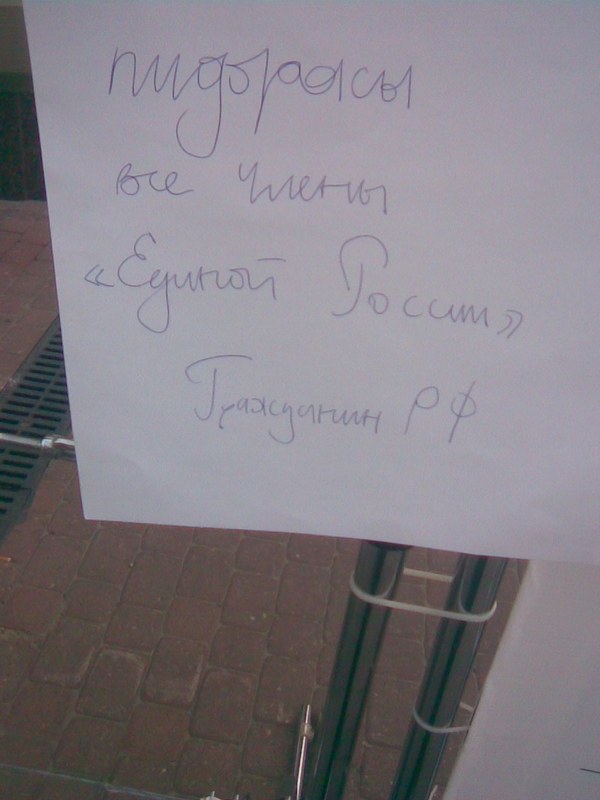 пидорасы
все члены
«Единой России»
Гражданин РФ